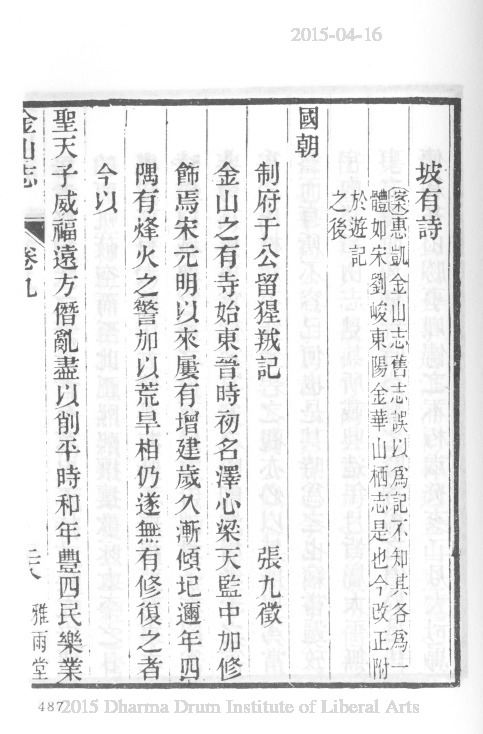 2015-04-16
坡有詩
案惠凱金山志舊志誤以爲記不知其各爲一
體如宋劉峻東陽金華山栖志是也今改正附
於遊記
之後
國朝
制府于公留猩絨記 張九徵
金山之有寺始東晉時初名澤心梁天監中加修
飾焉宋元明以來屢有增建歲久漸傾圮邇年四
隅有烽火之警加以荒旱相仍遂無有修復之者
今以
聖天子威福遠方僭亂盡以削平時和年豐四民樂業
金山志 卷九 雅雨堂
487
2015 Dharma Drum Institute of Liberal Arts